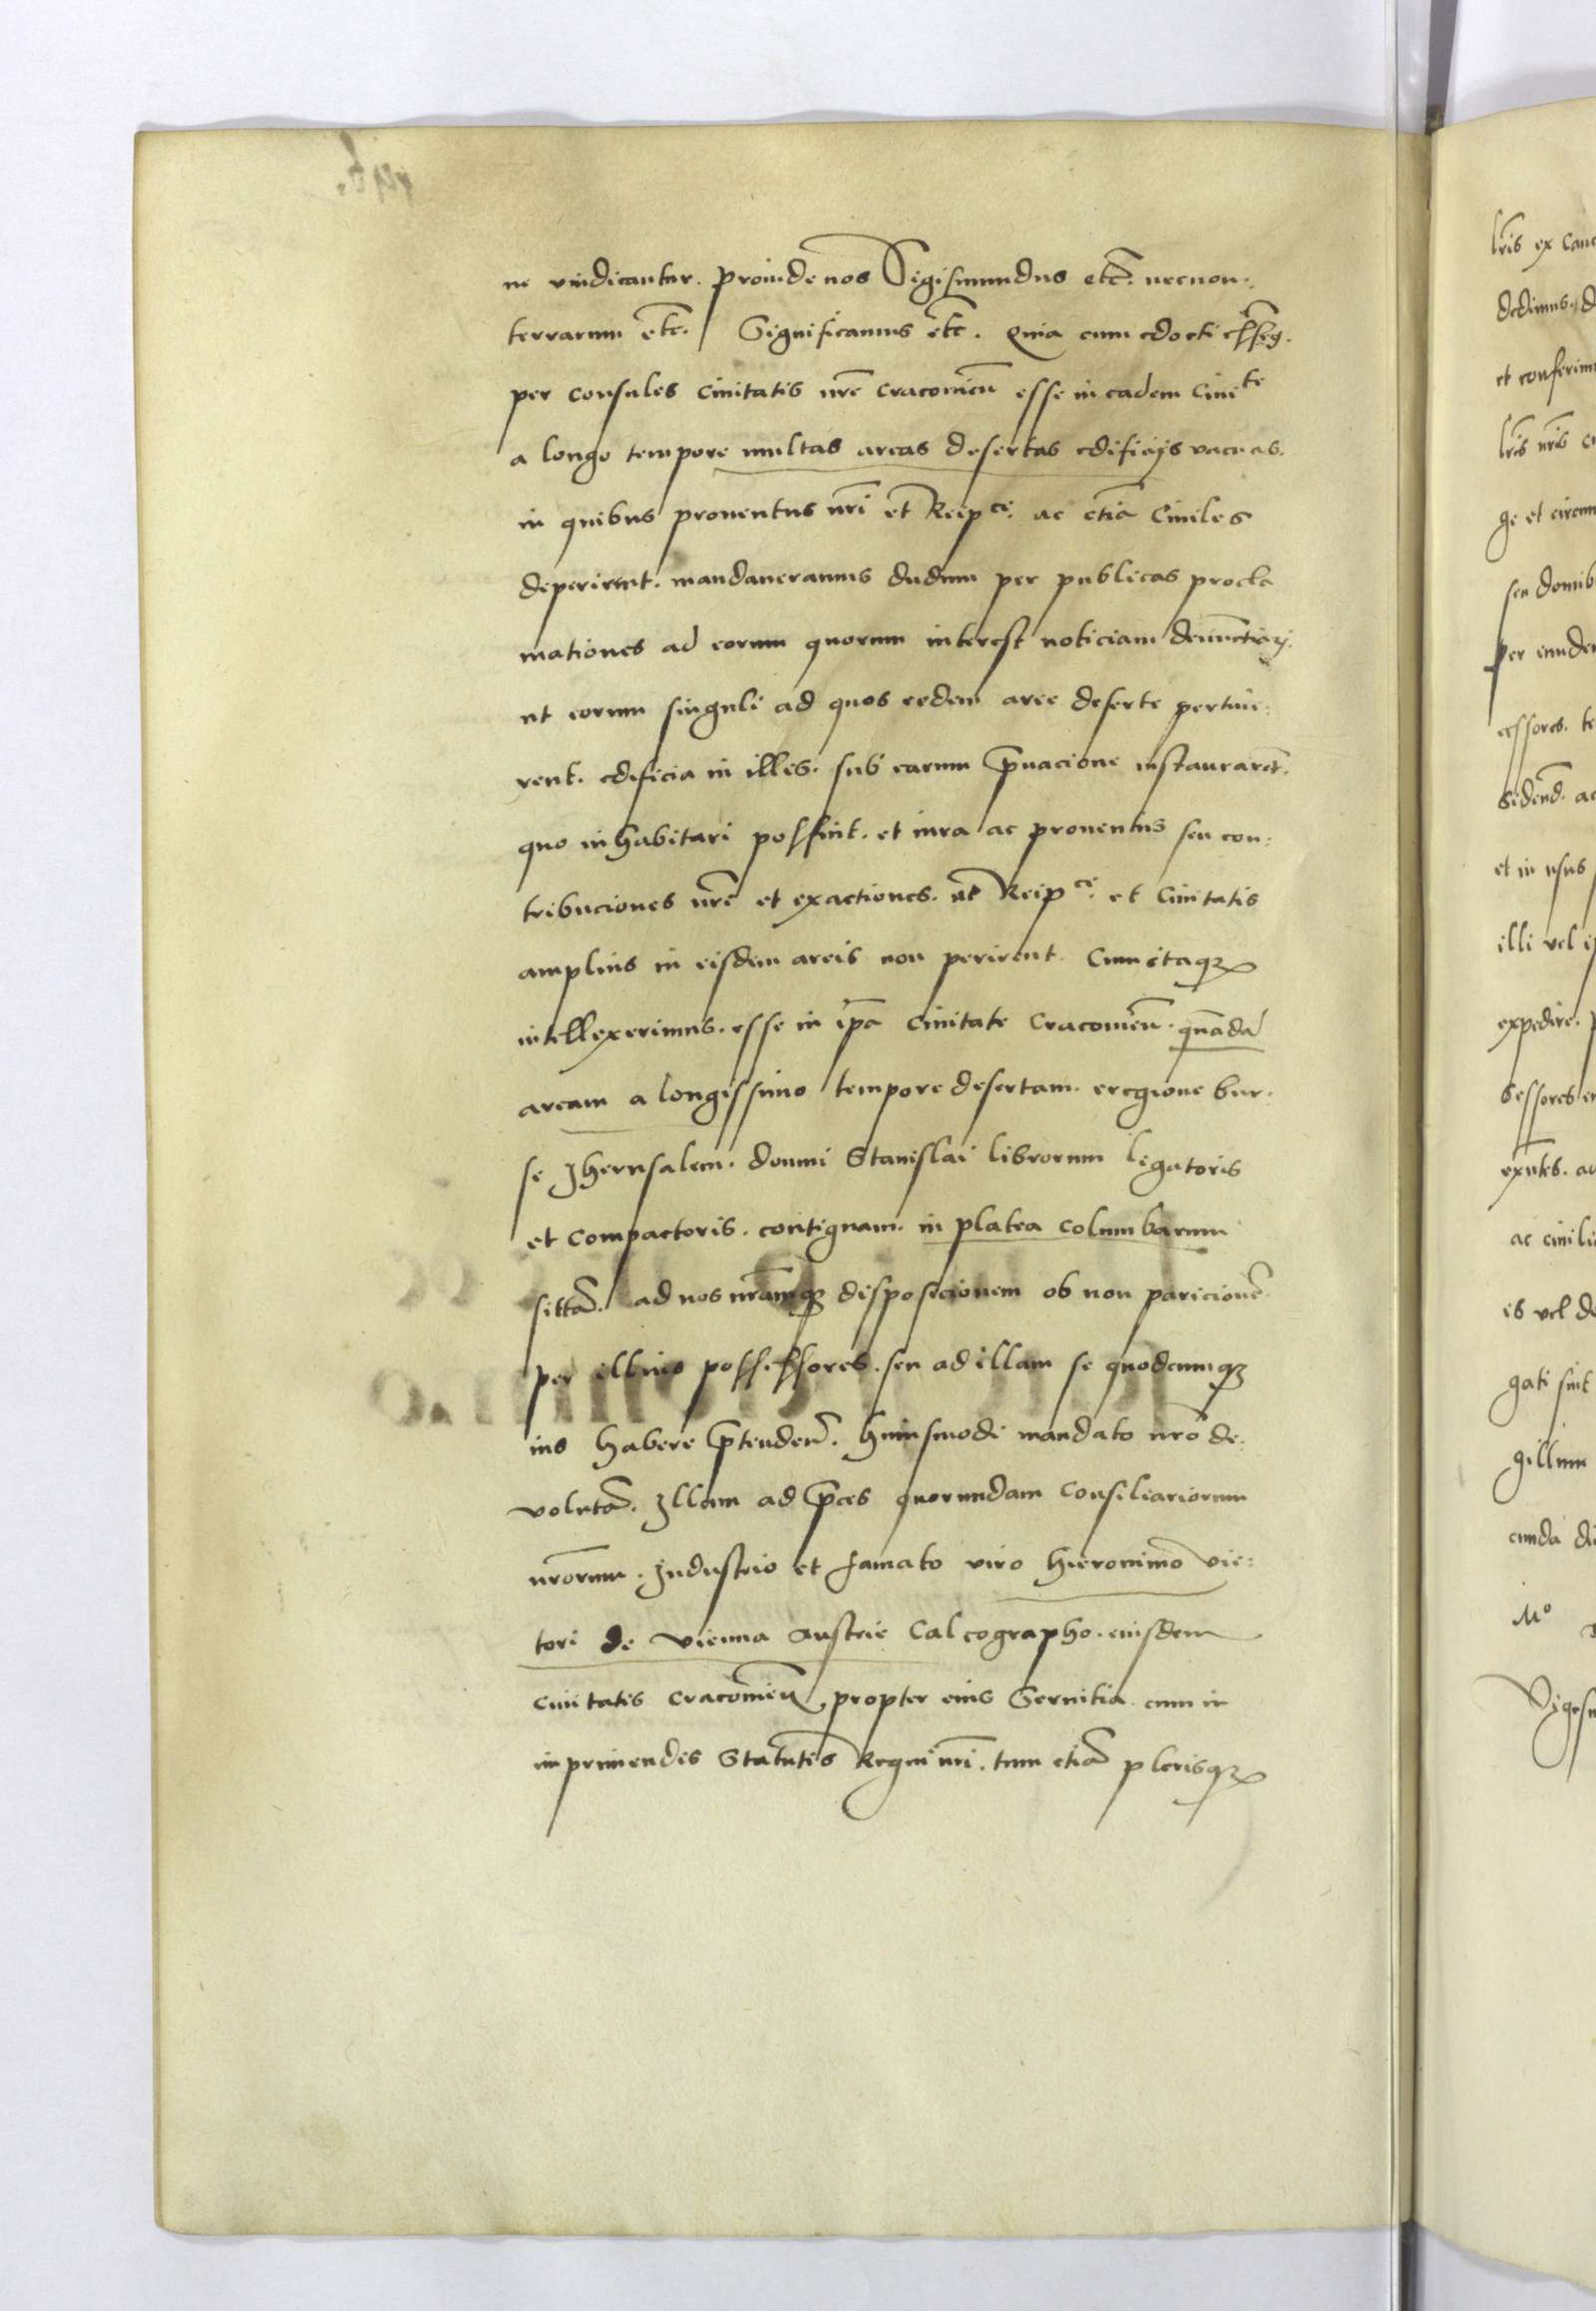 ne vindicantur. proinde nos Sigismundus etc. necnon.
terrarum etc. Significamus etc. Quia cum edocti essem9.
per consules ciuitatis nr̃e Cracouieñ esse in eadem Ciuite
a longo tempore multas areas desertas edificijs vacuas.
in quibus prouentus nr̃i et Reipce. ac etiã Ciuiles
deperirent. mandaueramus dudum per publicas procla
mationes ad eorum quorum interest noticiam denũctiarj.
ut eorum singuli ad quos eedem aree deserte pertine:
rent. edificia in illis. sub earum p̃uacione instaurarẽt.
quo inhabitari possint. et iura ac prouentus seu con:
tribuciones nr̃e et exactiones. ut Reipce. et Ciuitatis
amplius in eisdem areis non perirent. Cum itaqꝫ
intellexerimus. esse in ip̃a Ciuitate Cracouieñ. quãdã
aream a longissimo tempore desertam. eregione bur:
se Jherusalem. domui Stanislai librorum legatoris
et compactoris. contiguam. in platea columbarum
sittã. ad nos nr̃amqꝫ disposicionem ob non paricionẽ
per illius possessores. seu ad illam se quodcumqꝫ
ius habere p̃tendeñ. huiusmodi mandato nr̃o de:
volutã. Illam ad p̃ces quorundam Consiliariorum
nr̃orum. Industrio et famato viro Hieronimo Vie:
tori de Vienna Austrie Calcographo. eiusdem
ciuitatis Cracouieñ, propter eius Seruitia cum in
imprimendis Statutis Regni nr̃i. tum etiã plerisqꝫ
lr̃is ex Canc
dedimus. d
et conferim
lr̃is nr̃is
ge et circum
seu domib
per eunde
cessores. te
sideñd. ac
et in usus
illi vel i
expedire.
sessores
exñtes. ac
ac ciuili
is vel de
gati sint
gillum
cunda di
Mo
Vigesi